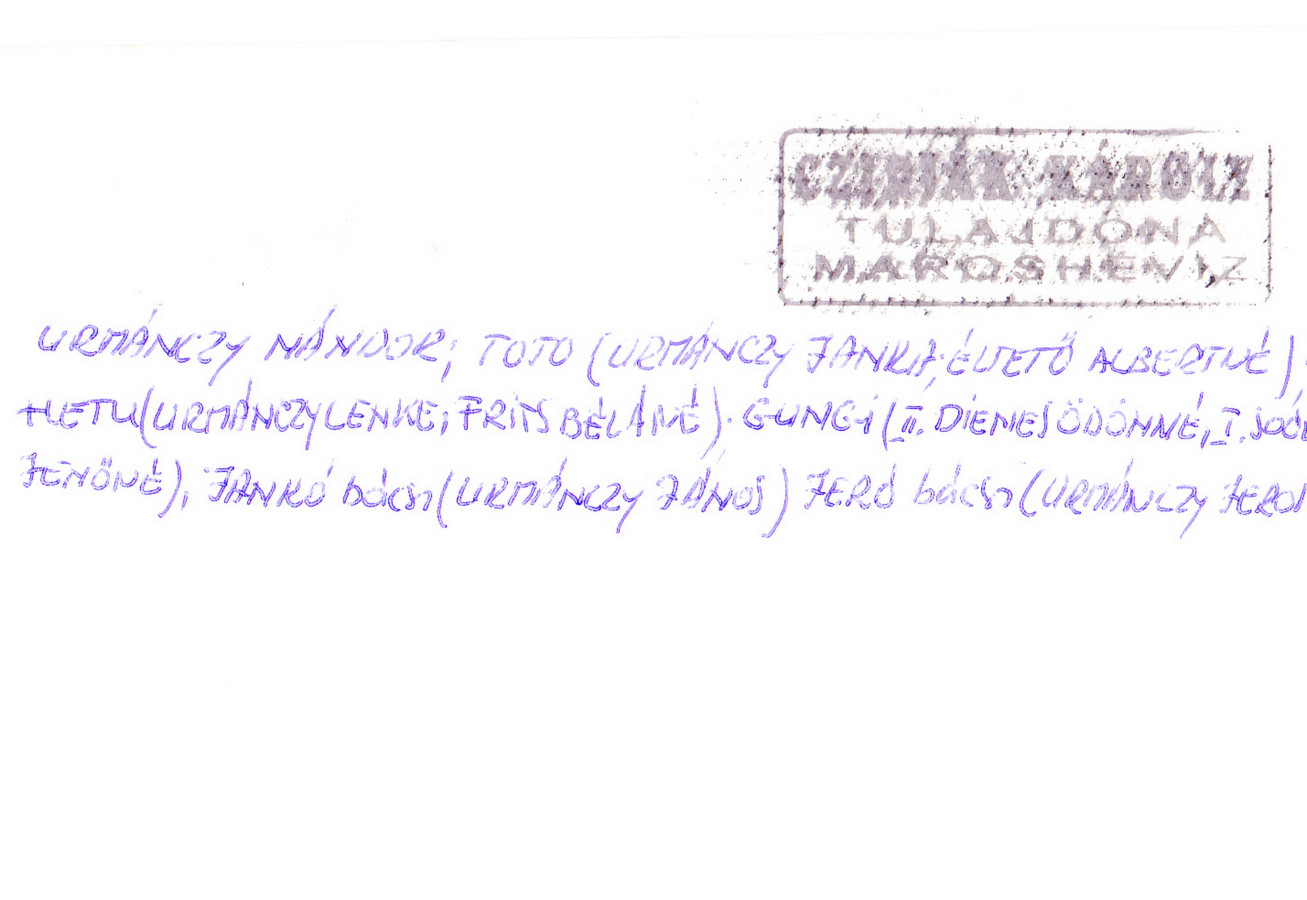 CZIRJÁK KÁROLY
TULAJDONA
MAROSHÉVIZ
URMÁNCZY NÁNDOR; TOTO (URMÁNCZY JANKA; ÉLTETŐ ALBERTNÉ),
HETU (URMÁNCZY LENKE; FRITS BÉLÁNÉ). GUNGI (II. DIENES ÖDÖNNÉ, I. SOÓ
JENŐNÉ), JANKÓ bácsi (URMÁNCZY JÁNOS) JERÓ bácsi (URMÁNCZY JERO